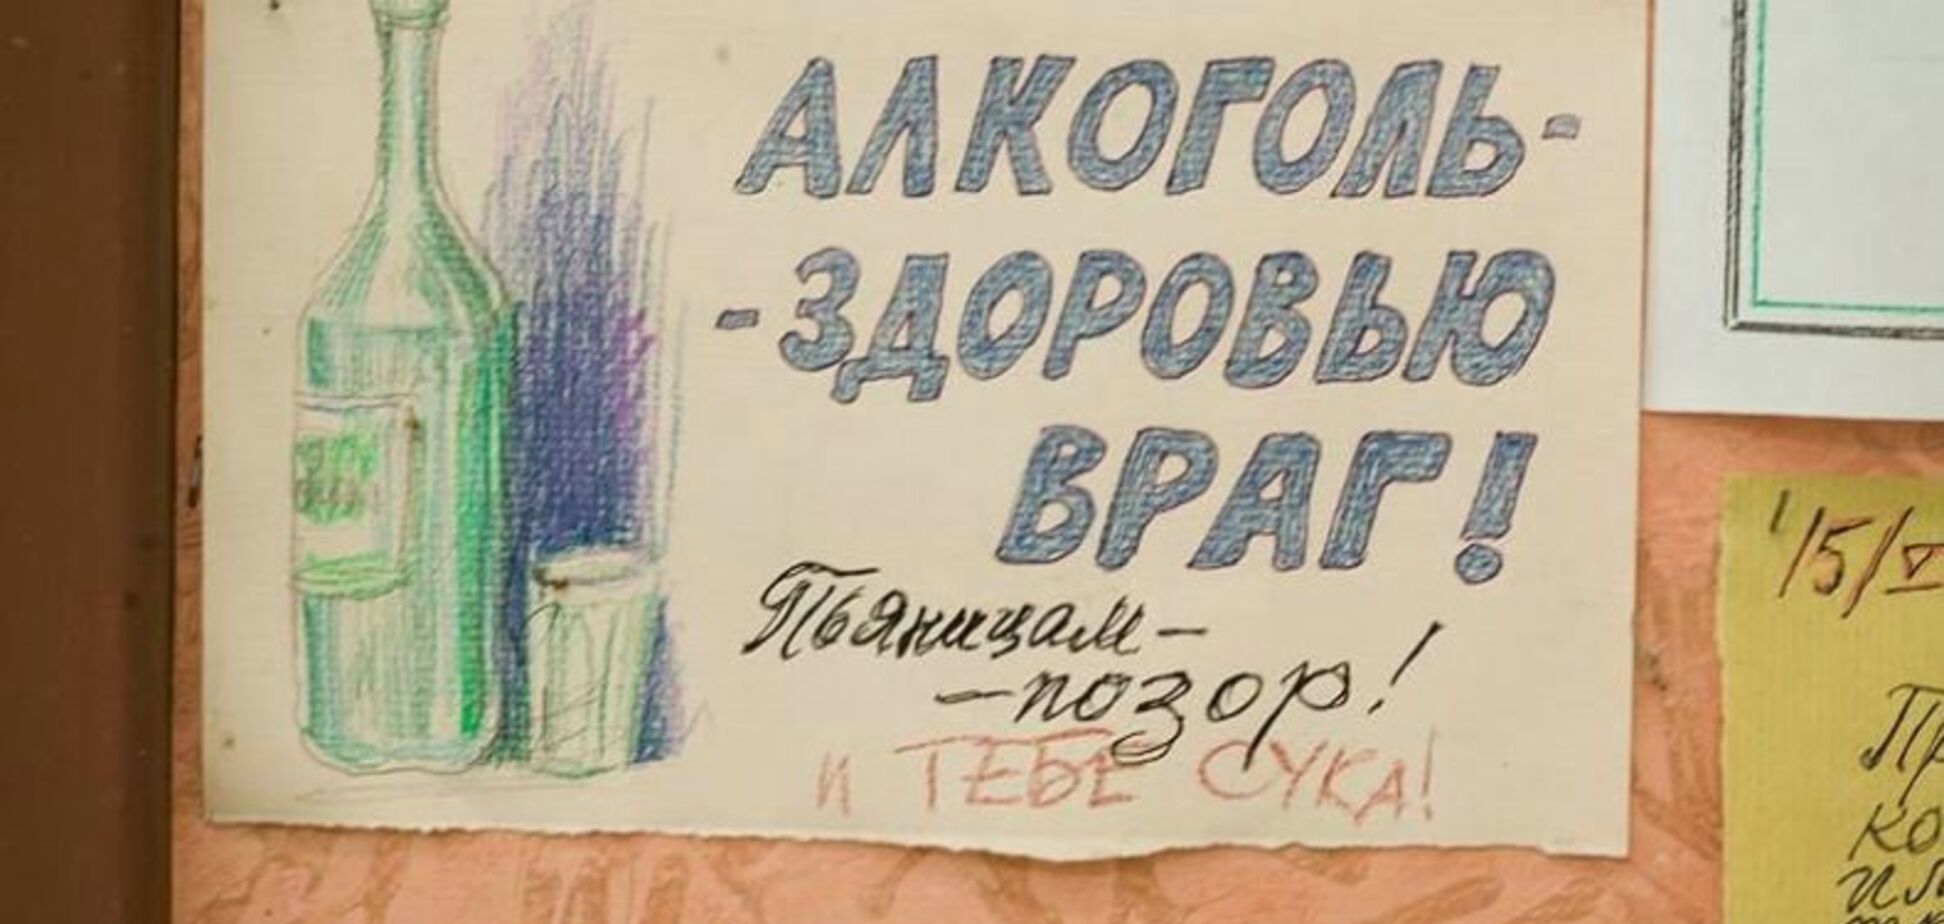 АЛКОГОЛЬ-
-ЗДОРОВЬЮ
ВРАГ!
Пьяницам-
-позор!
и ТЕБЕ СУКА!
15/V
Пр
ко